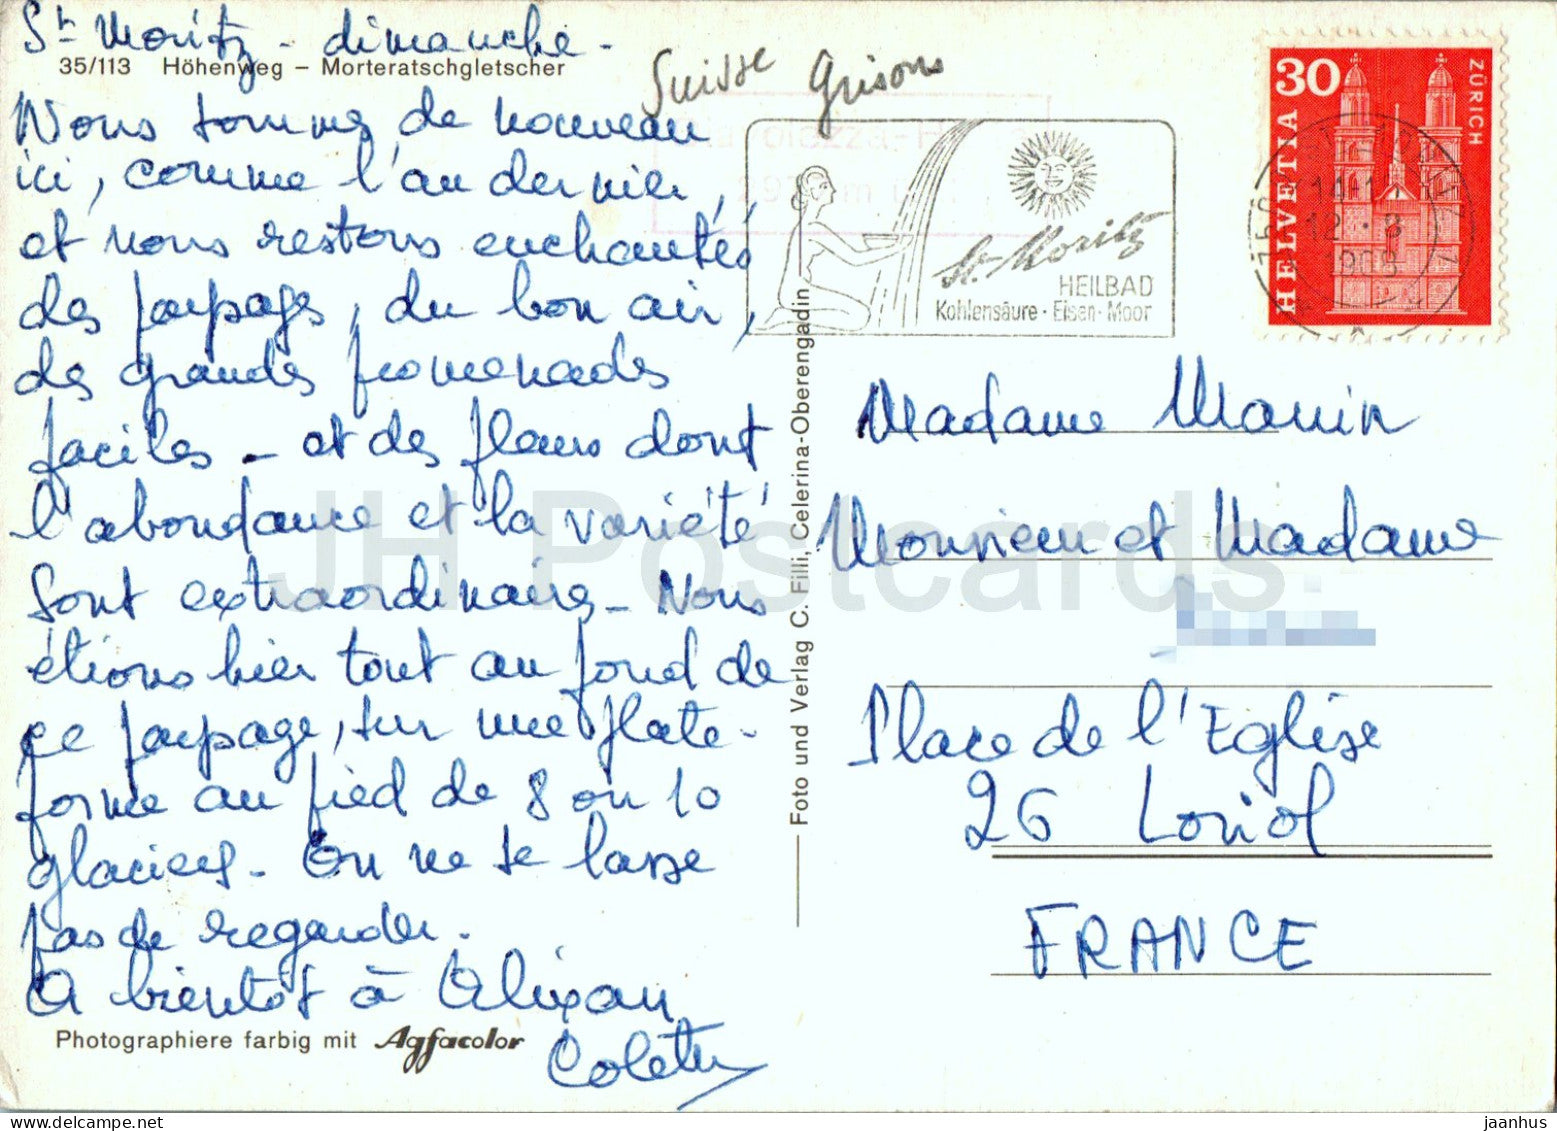 St Moritz - dimanche -
35/113 Höhenweg – Morteratschgletscher
Nous sommes de nouveau
ici, comme l'an dernier,
et nous restons enchantés
des paysages, du bon air,
des grandes promenades
faciles - et des fleurs dont
l'abondance et la variété
sont extraordinaires - Nous
étions hier tout au fond de
ce paysage, sur une plate-
forme au pied de 8 ou 10
glaciers - On ne se lasse
pas de regarder.
A bientôt à Alixan
Colette
Photographiere farbig mit Agfacolor
Suisse Grisons
St. Moritz
HEILBAD
Kohlensäure · Eisen · Moor
30
HELVETIA
ZÜRICH
12.-8
Foto und Verlag C. Filli, Celerina-Oberengadin
Madame
Monsieur et Madame
Place de l'Eglise
26 Loriol
FRANCE
JH Postcards
jaanhus